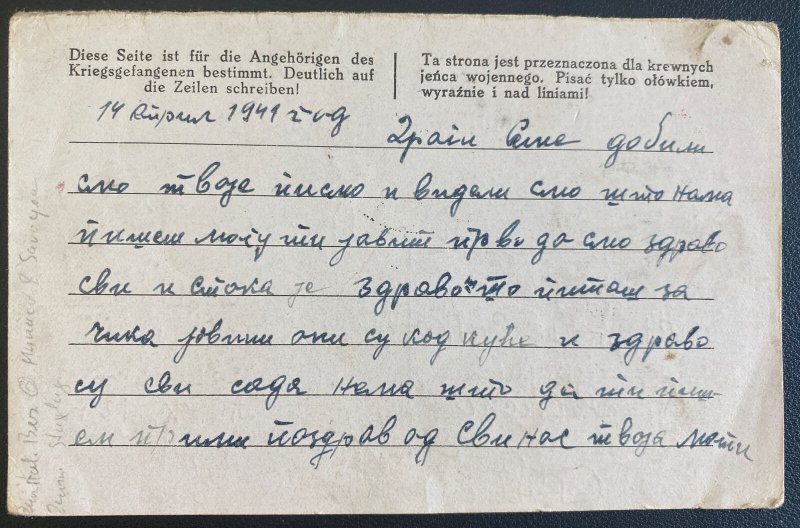 Diese Seite ist für die Angehörigen des
Kriegsgefangenen bestimmt. Deutlich auf
die Zeilen schreiben!
Ta strona jest przeznaczona dla krewnych
jeńca wojennego. Pisać tylko ołówkiem,
wyraźnie i nad liniami!
14 април 1941 год
Драги добили
смо твоје писмо и видели смо што нама
пишеш могу ти јавит прво да смо здраво
сви и стока је здраво што питаш за
чика они су код куће и здраво
су сви сада нама што да ти пиш-
ем прими поздрав од сви нас твоја мати